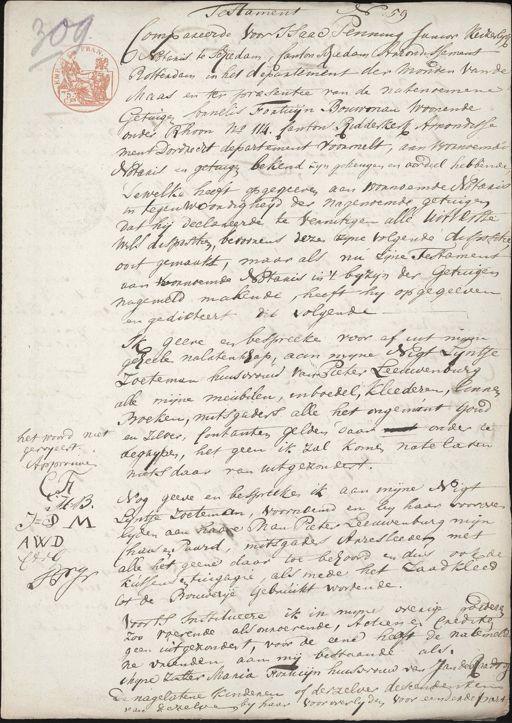 Testament N 59
309
Compareerde voor Isaac Penning Junior Keiserlyk
Notaris te Schiedam, Canton Schiedam Arrondissement
Rotterdam in het departement der Monden van de
Maas en ter presentie van de natenoemene
Getuigen Fontuijn Bouwman Woonende
onder Rhoon No 114 Canton Ridderkerk Arrondisse
ment Dordrecht departement voormelt, aan voornoemde
Notaris en getuigen bekend
dewelke heeft opgegeven aan voornoemde Notaris
in tegenwoordigheyd der nagenoemde getuigen
dat hij declareerde te vernietigen alle uitterste
Wils dispositien, bevorens deze
ooit gemaakt, maar als nu zijne Testament
aan voornoemde Notaris in 't bijzyn der Getuigen
nagemeld makende, heeft hij opgegeven
en gedicteert het volgende
Ik geeve en bespreeke voor af uit myne
geheele nalatenschap, aan myne Nigt Lyntje
Zoeteman huisvrouw van Pieter Leeuwenburg
alle myne meubilen, inboedel, kleederen, Linnen
Broeken, mitsgaders alle het ongemunt Goud
en Zilver, Contanten Gelden daar onder te
begrypen, het geen ik zal komen nate laten
niets daar van uitgezondert.
het woord niet
geroyeert
Approuve
Nog geeve en bespreeke ik aan myne Nigt
Lyntje Zoeteman, voornoemd en by haar voorover
lyden aan haare Man Pieter Leeuwenburg mijn
Chais en Paard, mitsgaders Arresleeden met
alle het geene daar toe behoord en dus ook de
kussens, tuigagie, als mede het Zaadkleed
tot de Bouwerije Gebruikt wordende.
J=D M
AWD
Voorts Instituere ik in myne overige goederen
Zoo roerende als onroerende, Actien en Crediten
geen uitgezondert, voor de eene helft de natemelde
ne vrienden, aan mij bestaande als.
myne Zuster Maria Fontuijn huisvrouw van Jan de
de nagelatene kinderen of derzelver descendenten
van dezelve by haar vooroverlyden voor een